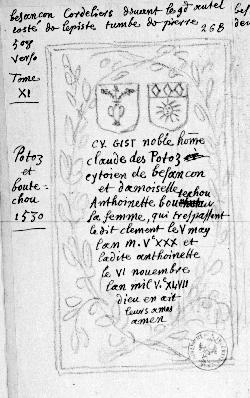 besancon Cordeliers devant le gd autel
costé do lepistre tumbe do pierre
268
509
verso
Tome
XI
Potoz
et
boute-
chou
1530
CY. GIST noble home
claude des Potoz
cytoien de besancon
et damoiselle
techou
Anthoinette bou
sa femme, qui trespassent
ledit clement le V may
lan m. Vc XXX et
ladite anthoinette
le VI novembre
lan mil Vc XLVII
dieu en ait
leurs ames
amen